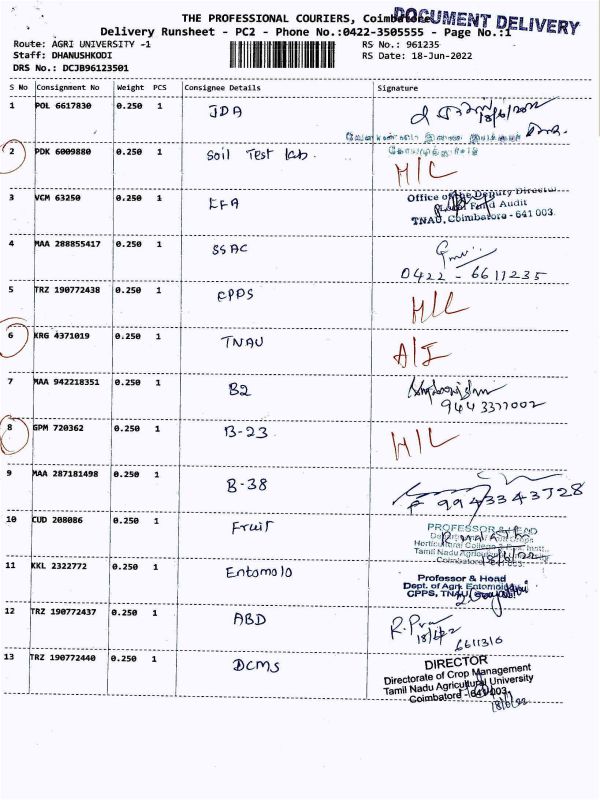 THE PROFESSIONAL COURIERS, Coimbatore
DOCUMENT DELIVERY
Delivery Runsheet - PC2 - Phone No.:0422-3505555 - Page No.:1
Route: AGRI UNIVERSITY -1
RS No.: 961235
Staff: DHANUSHKODI
RS Date: 18-Jun-2022
DRS No.: DCJB96123501
S No Consignment No Weight PCS Consignee Details Signature
1 POL 6617830 0.250 1 JDA 18/6/2022
2 PDK 6009880 0.250 1 Soil Test Lab. H/L
3 VCM 63250 0.250 1 LFA
Office of the Deputy Director
Local Fund Audit
TNAU, Coimbatore - 641 003.
4 MAA 288855417 0.250 1 SSAC
0422 - 6611235
5 TRZ 190772438 0.250 1 CPPS H/L
6 KRG 4371019 0.250 1 TNAU A/I
7 MAA 942218351 0.250 1 B2
9443377002
8 GPM 720362 0.250 1 B-23 H/L
9 MAA 287181498 0.250 1 B-38
9943343728
10 CUD 208086 0.250 1 Fruit
PROFESSOR & HEAD
Horticultural College &
Tamil Nadu Agricultural
Coimbatore
18/6/22
11 KKL 2322772 0.250 1 Entomolo
Professor & Head
Dept. of Agrl. Entomology
CPPS, TNAU,
12 TRZ 190772437 0.250 1 ABD
18/6/22
6611310
13 TRZ 190772440 0.250 1 DCMS
DIRECTOR
Directorate of Crop Management
Tamil Nadu Agricultural University
Coimbatore - 641 003.
18/6/22